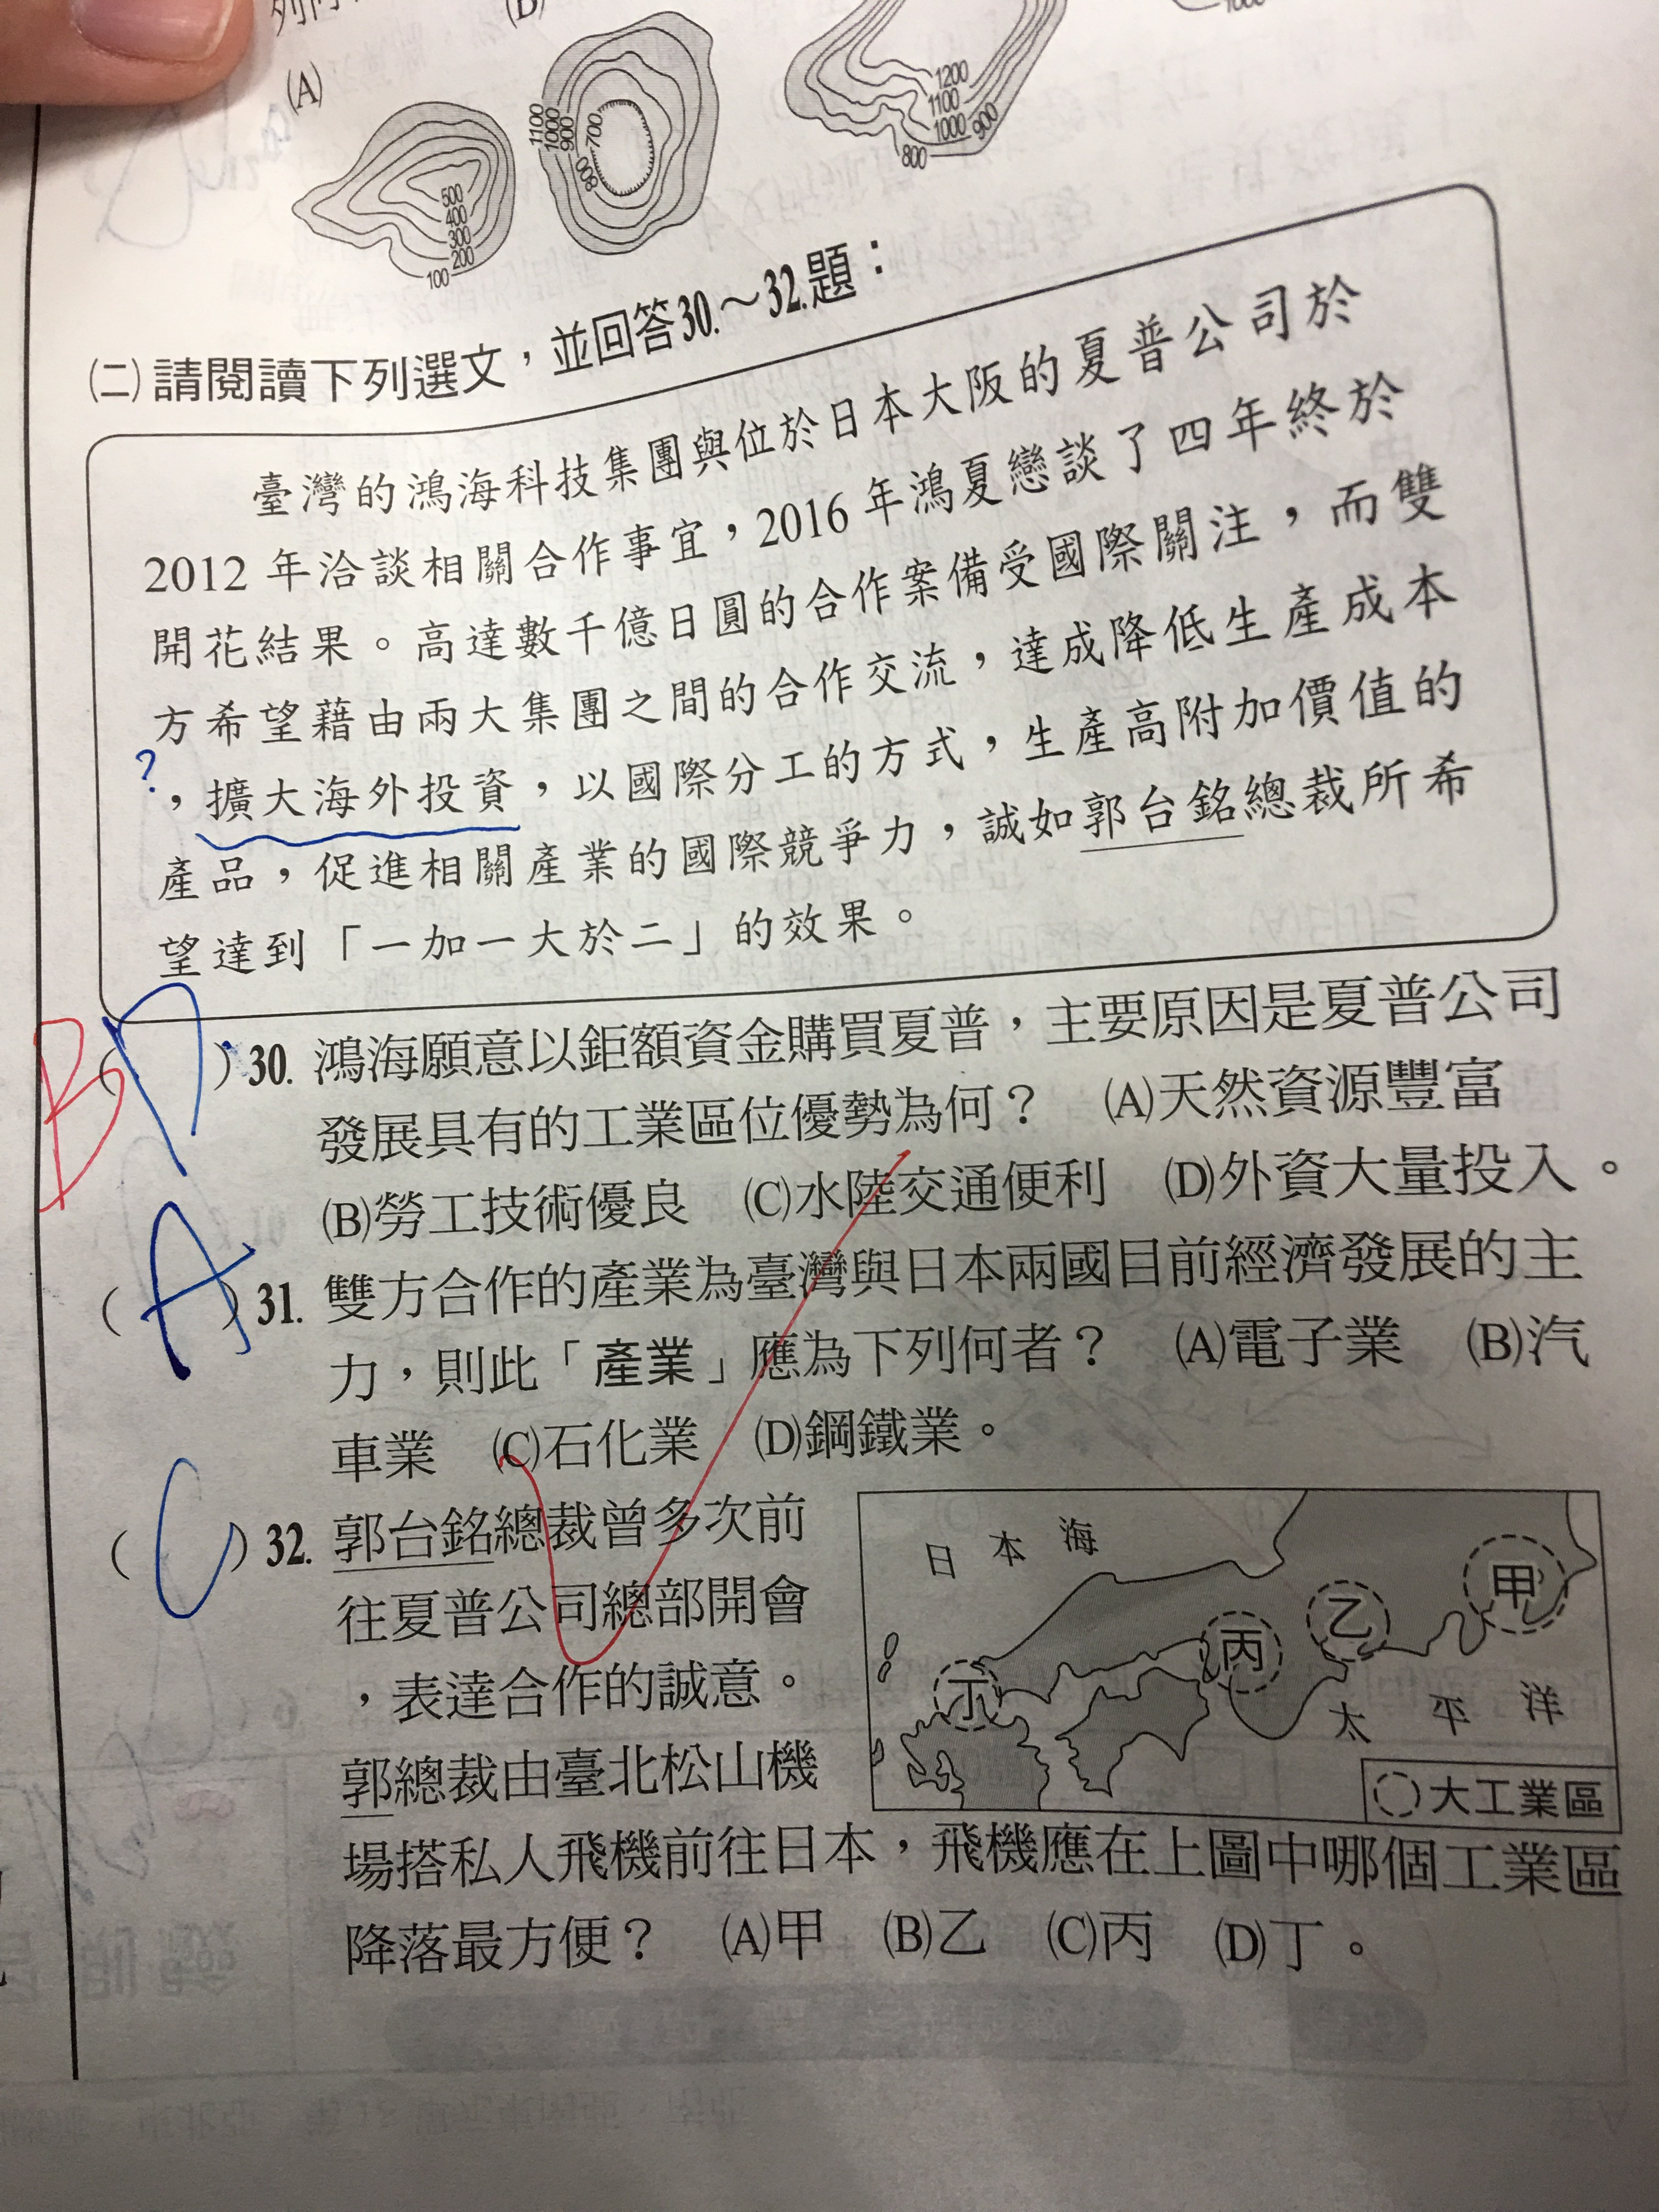 (B)
1000
(A)
1200
1100
1000
900
800
1100
1000
900
800
700
500
400
300
200
100
㈡請閱讀下列選文，並回答30.～32.題：
臺灣的鴻海科技集團與位於日本大阪的夏普公司於
2012年洽談相關合作事宜，2016年鴻夏戀談了四年終於
開花結果。高達數千億日圓的合作案備受國際關注，而雙
方希望藉由兩大集團之間的合作交流，達成降低生產成本
?
，擴大海外投資，以國際分工的方式，生產高附加價值的
產品，促進相關產業的國際競爭力，誠如郭台銘總裁所希
望達到「一加一大於二」的效果。
B
( D )30. 鴻海願意以鉅額資金購買夏普，主要原因是夏普公司
發展具有的工業區位優勢為何？ (A)天然資源豐富
(B)勞工技術優良 (C)水陸交通便利 (D)外資大量投入。
( A )31. 雙方合作的產業為臺灣與日本兩國目前經濟發展的主
力，則此「產業」應為下列何者？ (A)電子業 (B)汽
車業 (C)石化業 (D)鋼鐵業。
( C )32. 郭台銘總裁曾多次前
往夏普公司總部開會
，表達合作的誠意。
郭總裁由臺北松山機
場搭私人飛機前往日本，飛機應在上圖中哪個工業區
降落最方便？ (A)甲 (B)乙 (C)丙 (D)丁。
日本海
甲
乙
丙
丁
太平洋
大工業區